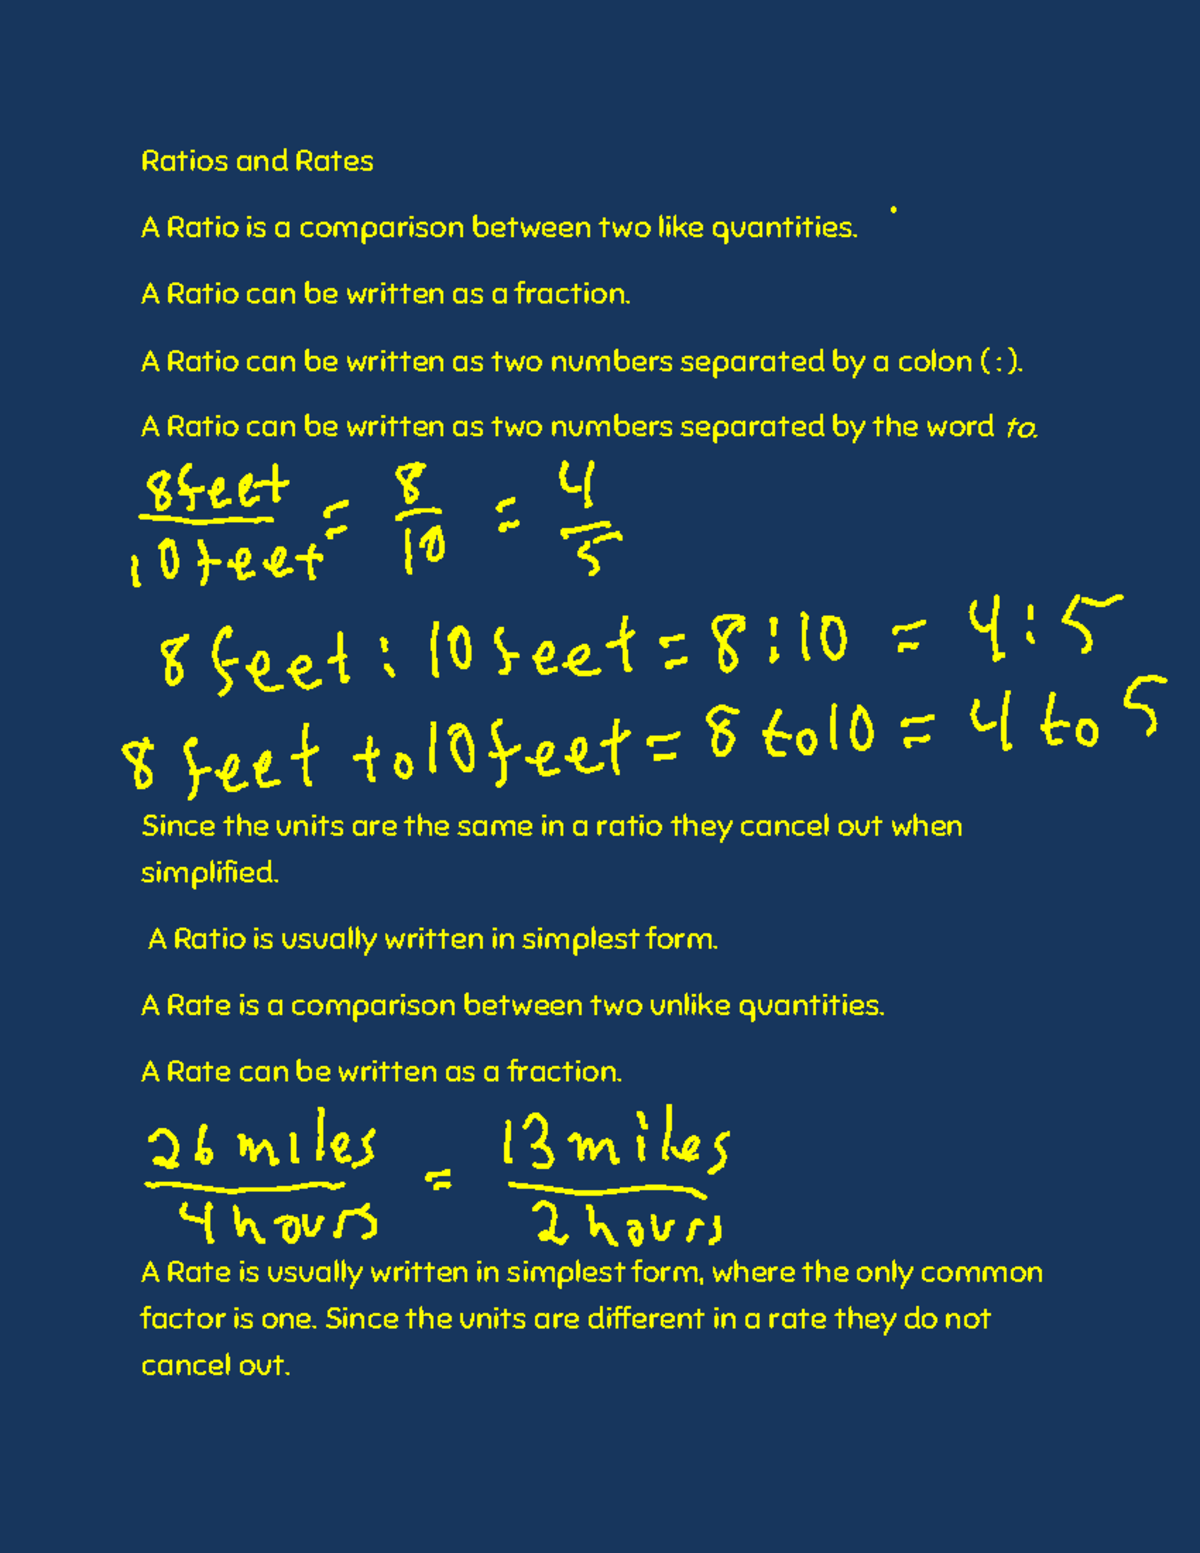 Ratios and Rates
A Ratio is a comparison between two like quantities.
A Ratio can be written as a fraction.
A Ratio can be written as two numbers separated by a colon (:).
A Ratio can be written as two numbers separated by the word to.
8feet/10feet = 8/10 = 4/5
8 feet : 10 feet = 8 : 10 = 4 : 5
8 feet to 10 feet = 8 to 10 = 4 to 5
Since the units are the same in a ratio they cancel out when
simplified.
A Ratio is usually written in simplest form.
A Rate is a comparison between two unlike quantities.
A Rate can be written as a fraction.
26 miles/4 hours = 13 miles/2 hours
A Rate is usually written in simplest form, where the only common
factor is one. Since the units are different in a rate they do not
cancel out.